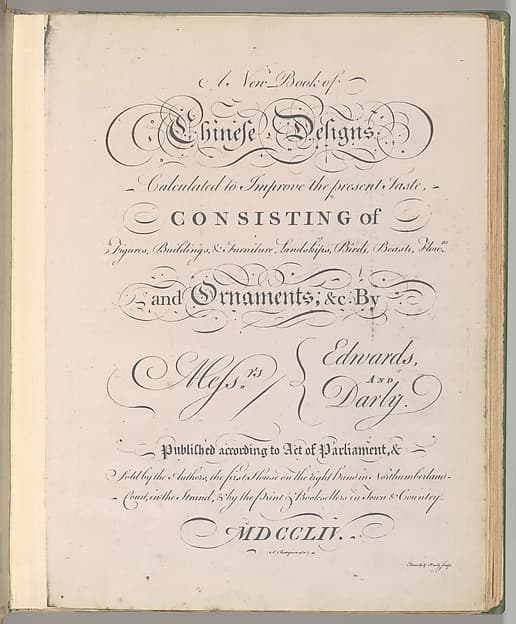 A New Book of
Chineſe Deſigns
Calculated to Improve the preſent Taste,
CONSISTING of
Figures, Buildings, & Furniture, Landskips, Birds, Beasts, Flowrs.
and Ornaments, &c. By
Meſsrs. Edwards,
AND
Darly.
Publiſhed according to Act of Parliament, &
Sold by the Authors, the first House on the right hand in Northumberland-
Court, in the Strand, & by the Print & Booksellers in Town & Country.
MDCCLIV.
Edwards & Darly Sculp.